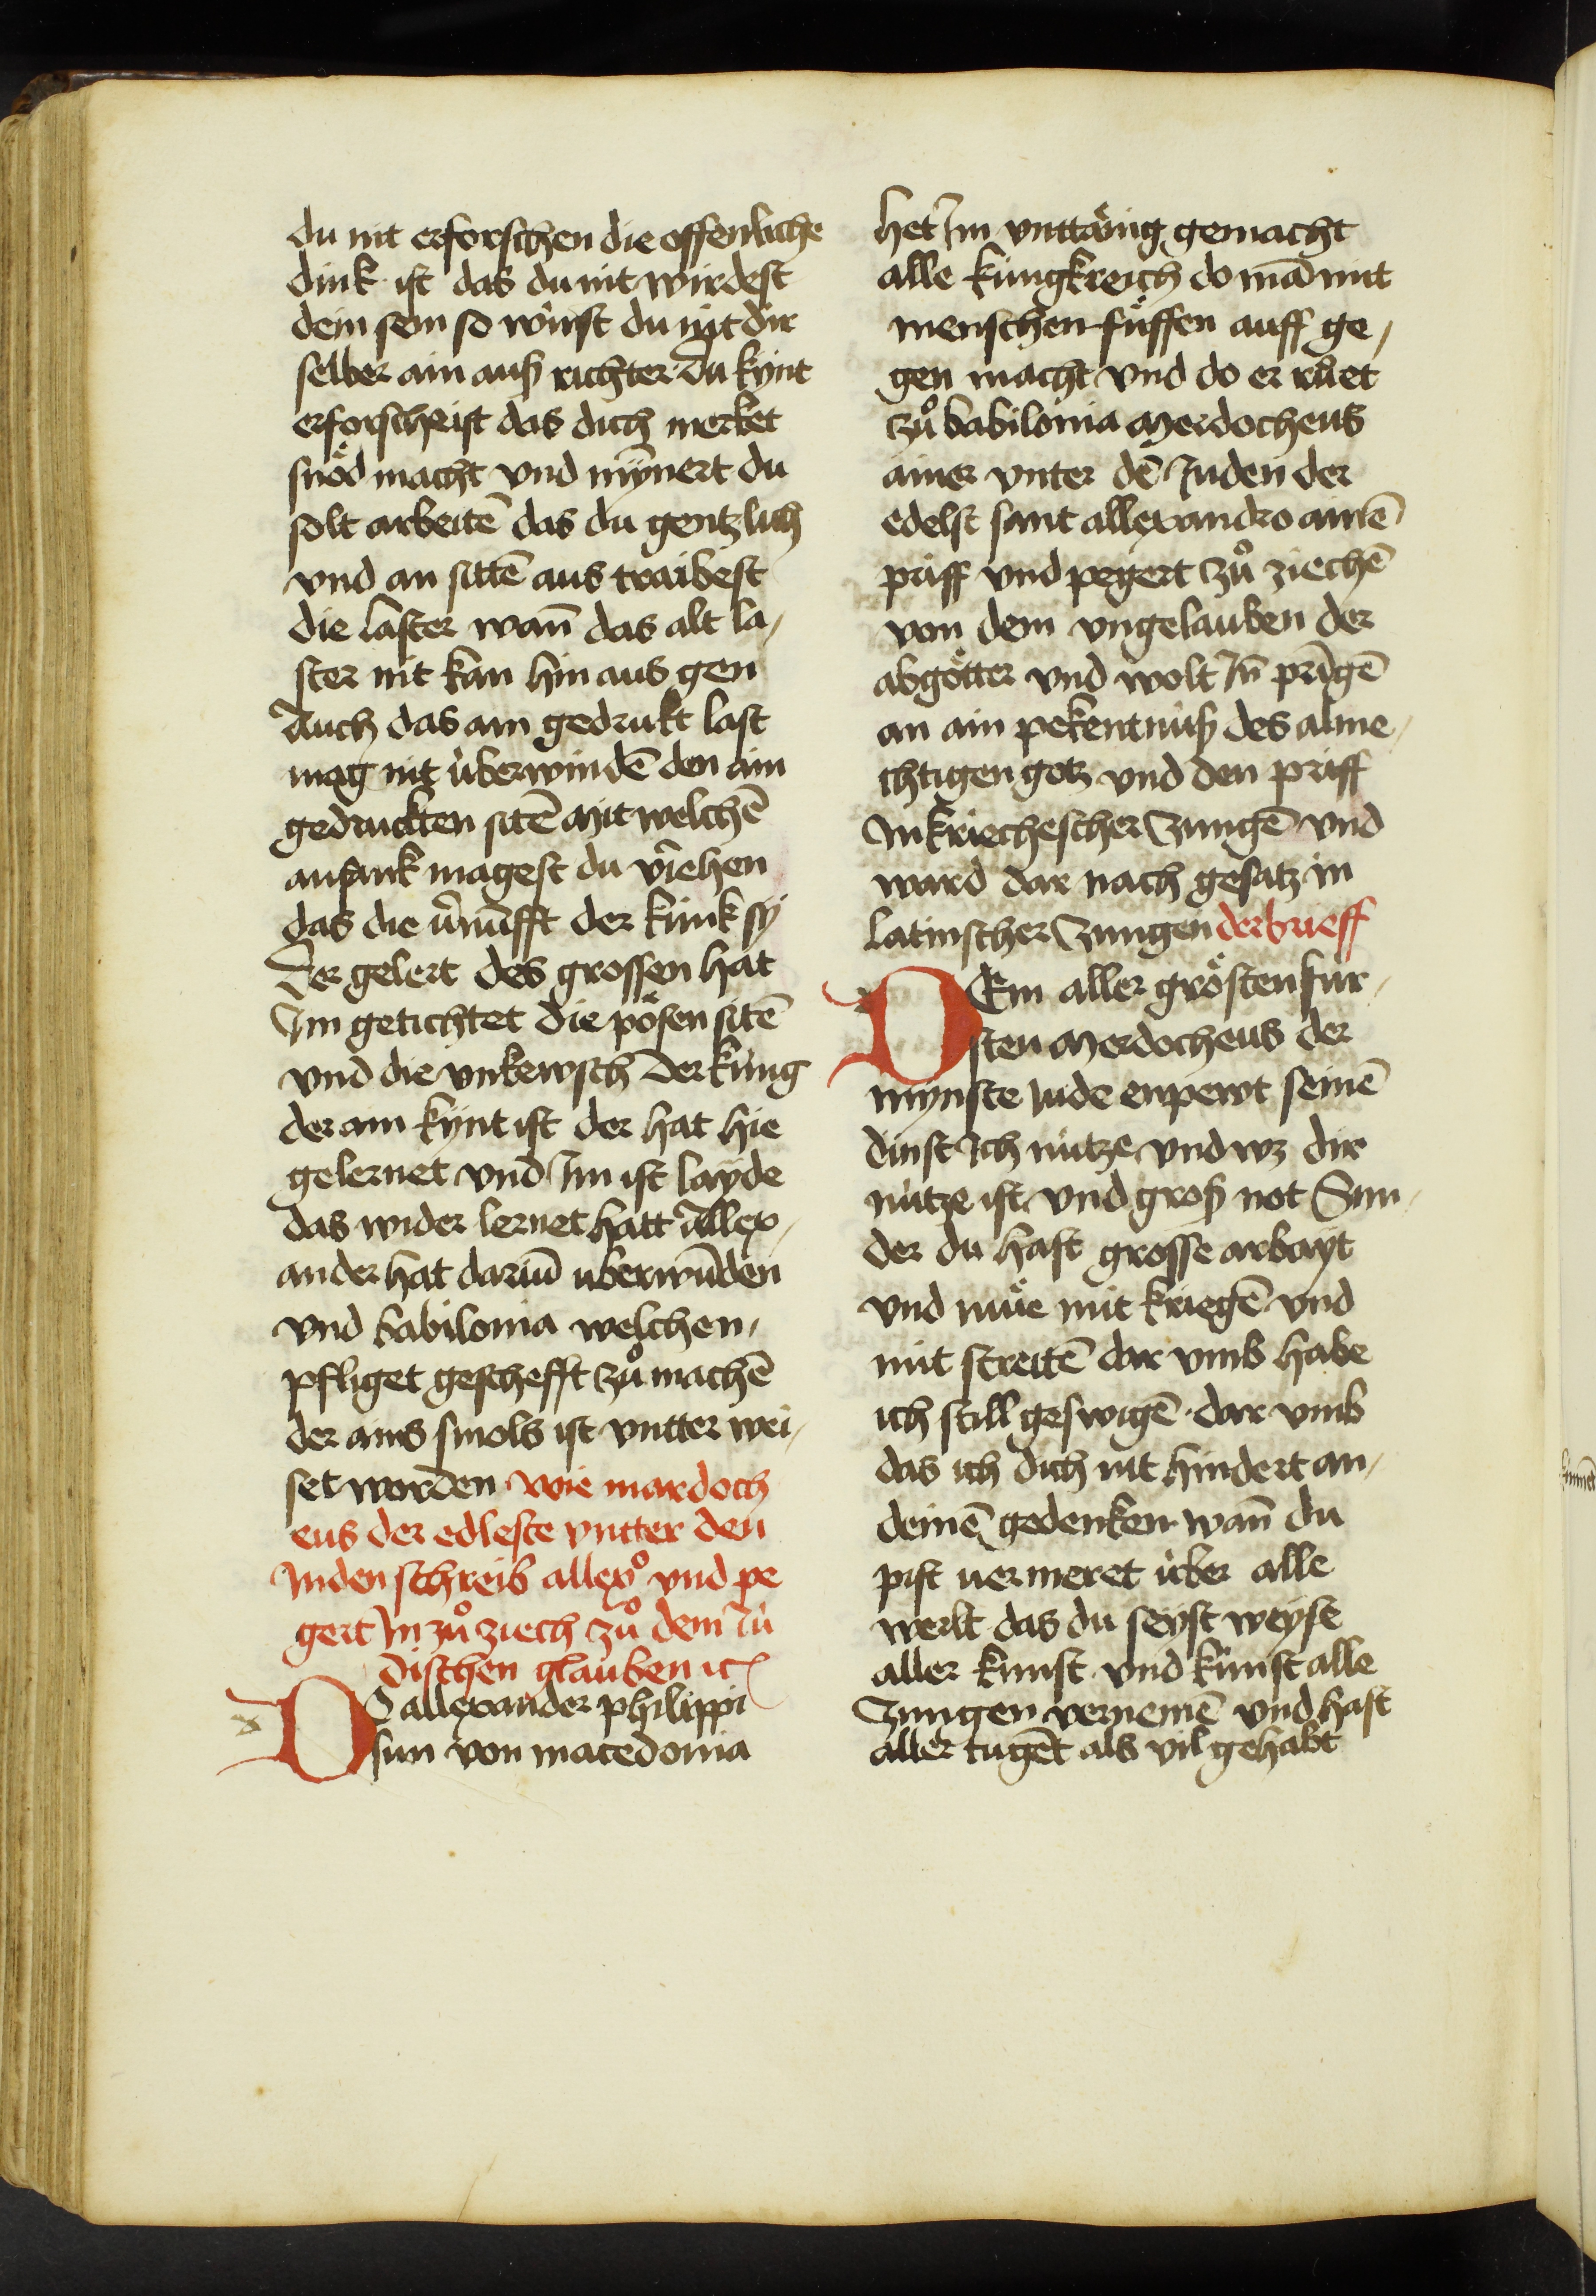 du nit erforschen die offenliche
dink ist das du nit wirdest
dein sein so wirst du nit dir
selber ain auß richter du kynt
erforschrist das dich merket
snöd macht vnd mȳnert du
solt arbeitē das du gentzlich
vnd an sittē aus traibest
die laster wañ das alt la,
ster nit kan hin aus gen
Auch das ain gedrukt last
mag nit überwindē den ain
gedruckten sitē mit welchē
anfank magest du v̄iehen
das die v̄nūfft der künk sy
Der gelert des grossen hat
Im getichtet die pösen sitē
vnd die vnkewsch Der küng
der ain kynt ist der hat hie
gelernet vnd Im ist layde
das wider lernet hatt Allex,
ander hat dariū uberwūden
vnd babilonia welchen,
pfliget geschefft zů machē
der ains smols ist vntter wei,
set worden wie mardoch
eus der edleste vntter den
Juden schreib allexº vnd pe
gert In zů ziech zů dem Jü
dischen glauben ꝛc
DO allexander philippi
sun von macedonia
het Im vnttänig gemacht
alle küngkreich do mā mit
menschen füssen auff ge,
gen macht vnd do er růet
zů babilonia Merdocheus
ainer vnter dē Juden der
edelst sant allexandro ainē
priff vnd pegert zů ziechē
von dem vngelauben der
abgötter vnd wolt In̄ prīgē
an ain pekentnüß des alme,
chtigen gotz vnd den priff
In kriechescher zungē vnd
ward dar nach gesatz in
latinscher zungen der brieff
DEm aller grösten für,
sten Merdocheus der
mynste Jude enpewt seinē
dinst Ich nütze vnd wz dir
nütze ist vnd groß not Sun,
der du hast grosse arbayt
vnd müe mit kriegē vnd
mit streitē dar vmb habe
ich still geswigē · dar vmb
das ich dich nit hindert an,
deinē gedenken wañ du
pist uermeret über alle
werlt das du seyst weyse
aller kunst vnd künst alle
zungen vernemē vnd hast
aller tugēt als vil gehabt